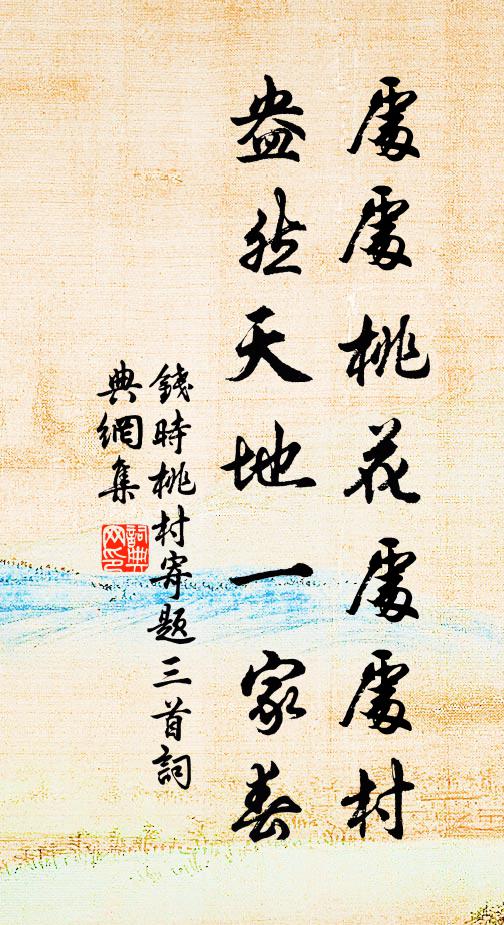 處處桃花處處村
盎然天地一家春
錢時桃村寄題三首詞
典網集
詞典
网印